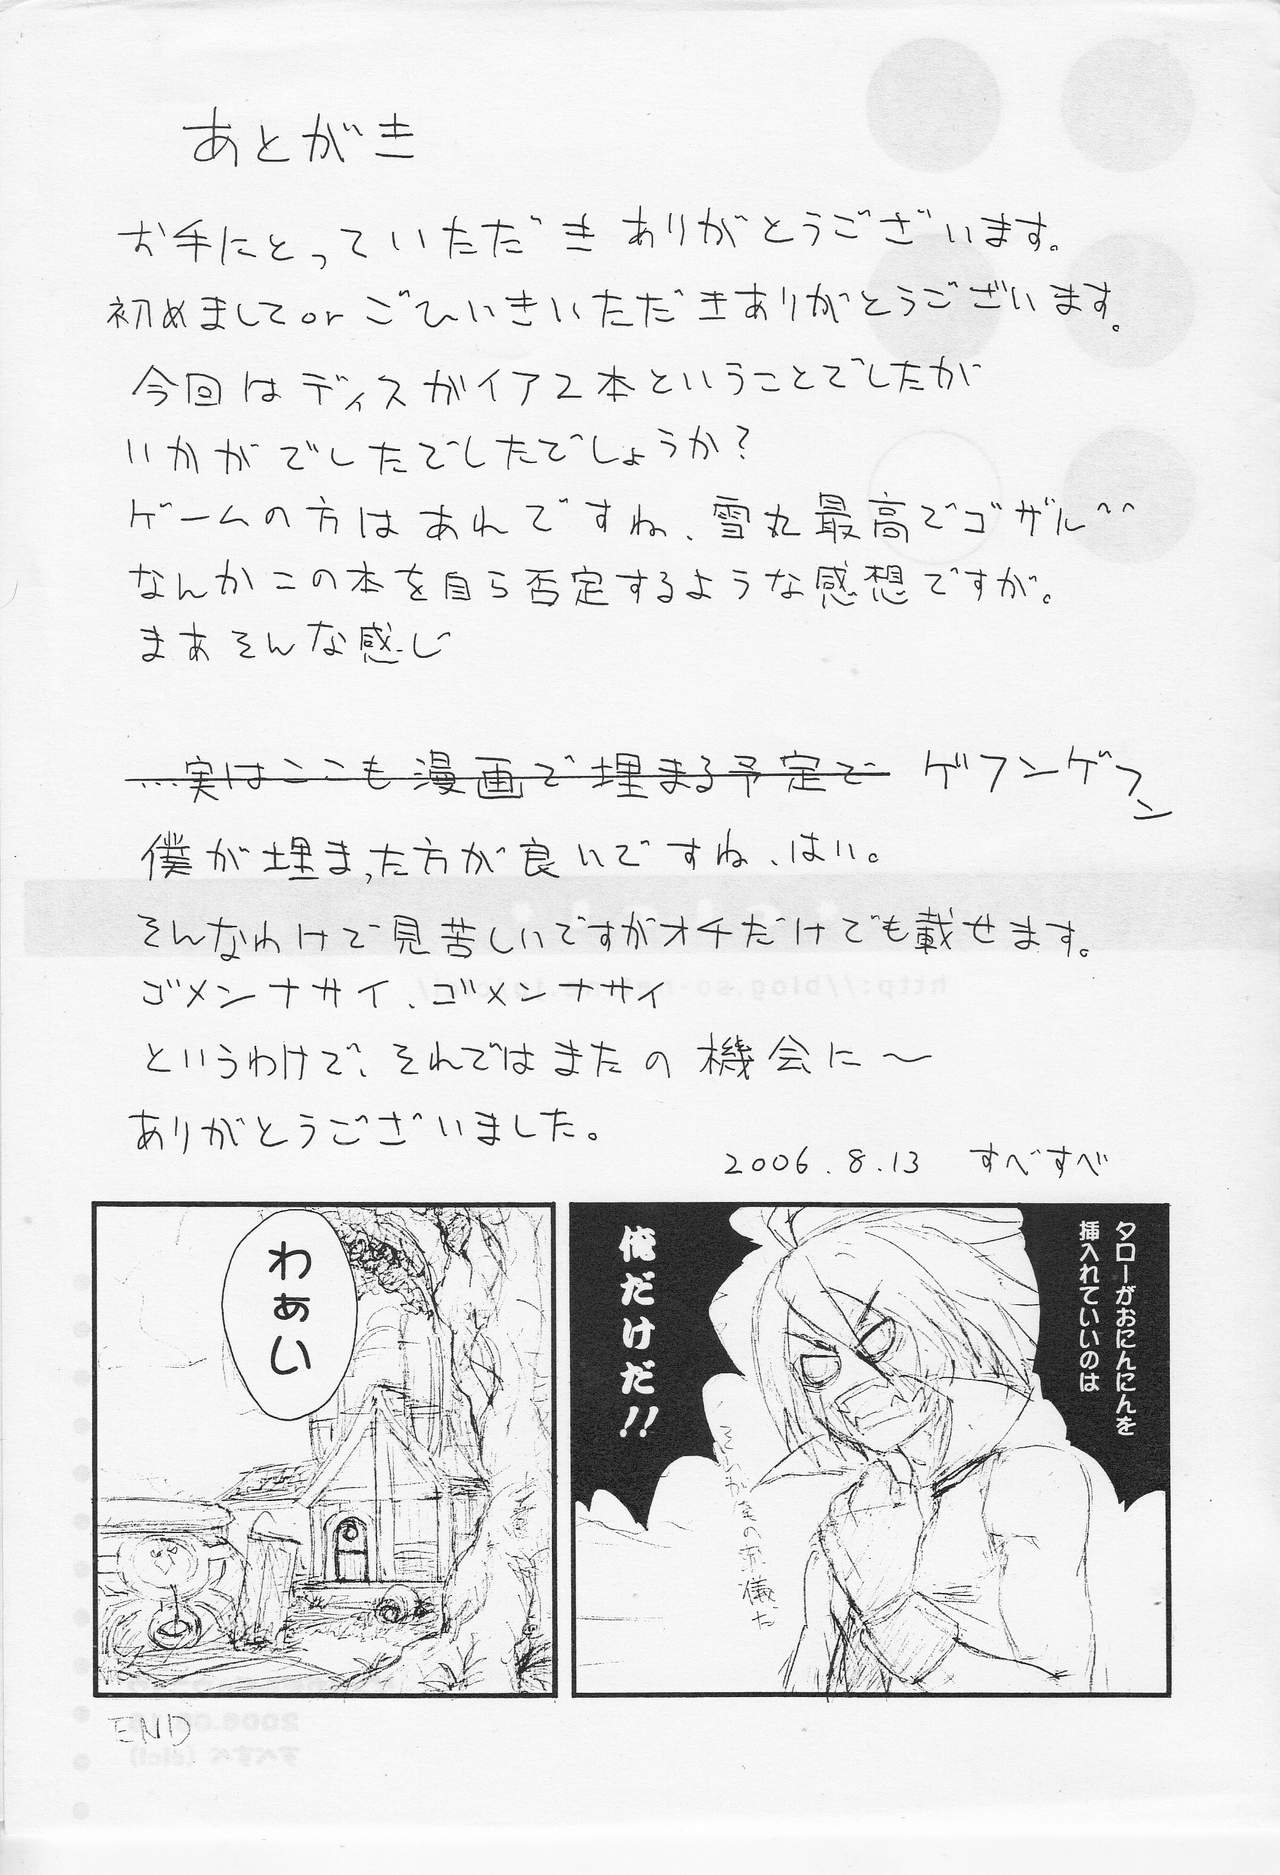 あとがき
お手にとっていただき ありがとうございます。
初めましてor ごひいきいただきありがとうございます。
今回はディスガイア2本ということでしたが
いかがでしたでしたでしょうか?
ゲームの方はあれですね、雪丸最高でゴザル^^
なんかこの本を自ら否定するような感想ですが。
まあそんな感じ
...実はここも漫画で埋まる予定で ゲフンゲフン
僕が埋まった方が良いですね、はい。
そんなわけで見苦しいですがオチだけでも載せます。
ゴメンナサイ、ゴメンナサイ
というわけで、それではまたの機会に〜
ありがとうございました。
2006.8.13 すべすべ
わぁい
END